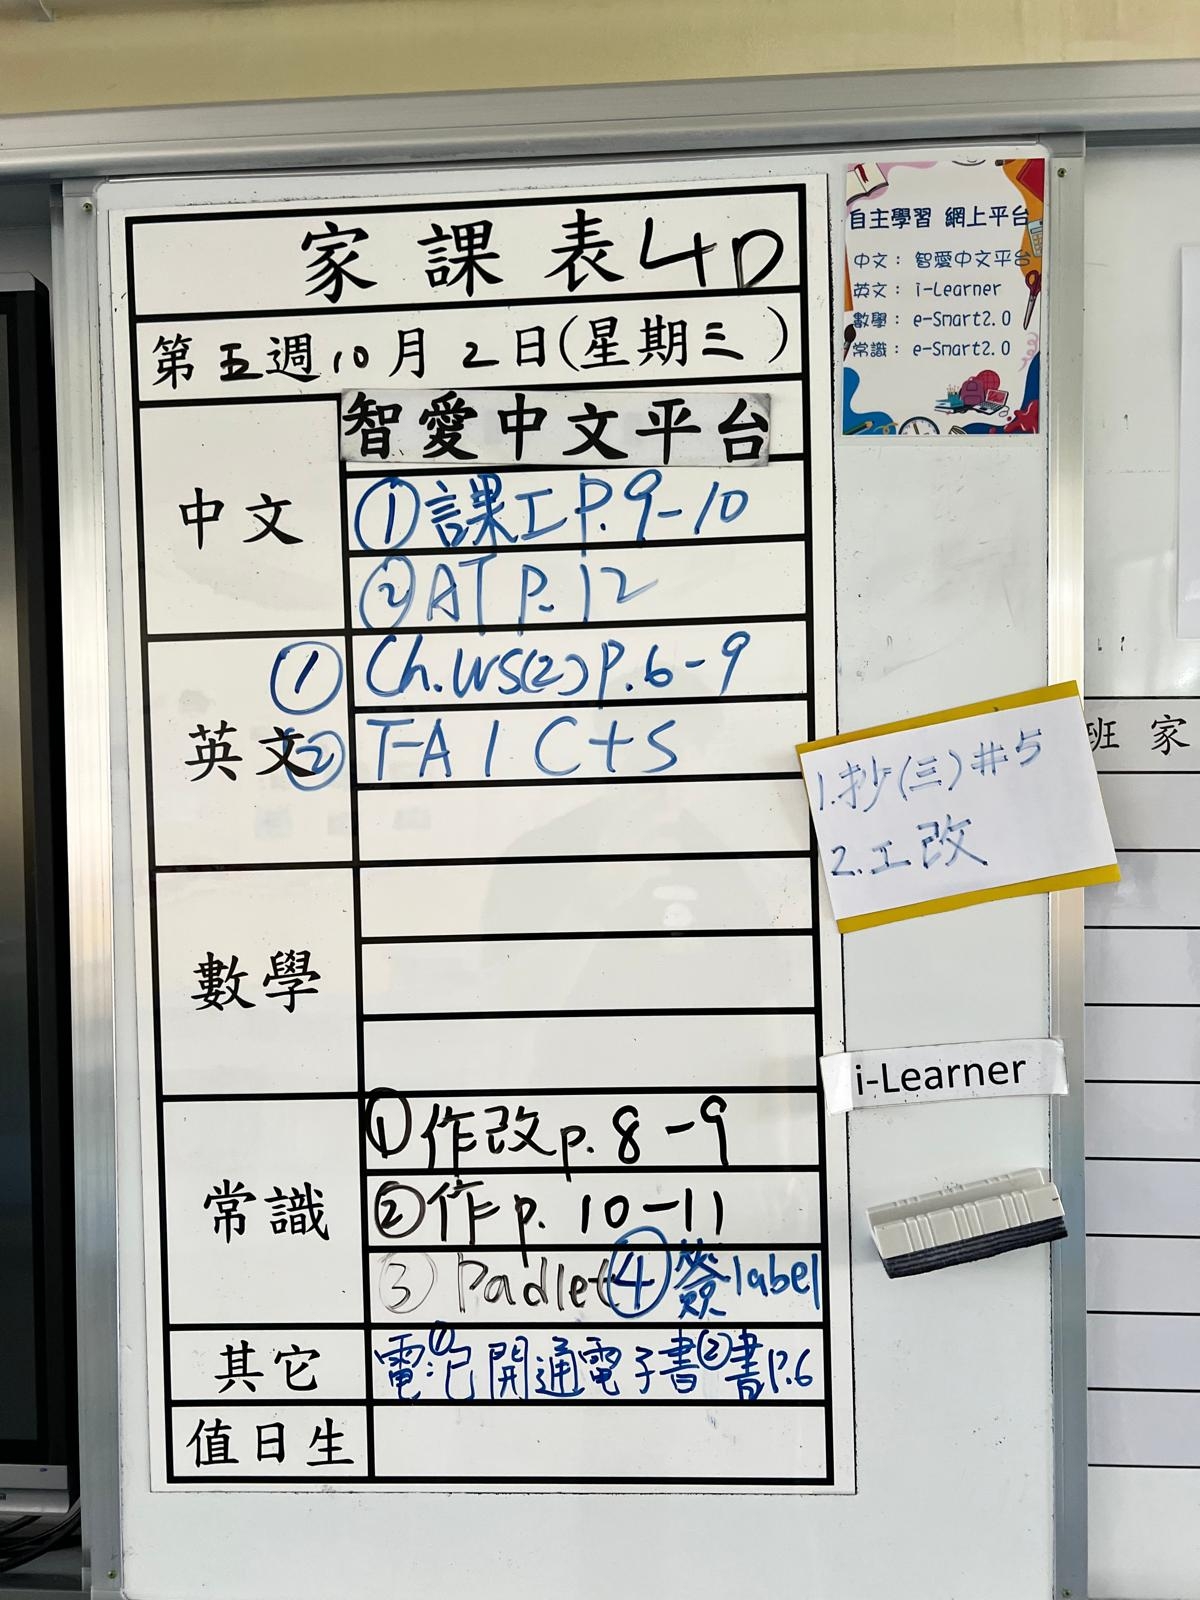 家課表 4D
第五週10月2日(星期三)
中文
智愛中文平台
①課工P.9-10
②AT P.12
英文
①Ch.WS(2)P.6-9
②T-A1C+S
數學
常識
①作改p.8-9
②作p.10-11
③Padlet④簽label
其它
電:①已開通電子書②書P.6
值日生
自主學習 網上平台
中文： 智愛中文平台
英文： i-Learner
數學： e-Smart2.0
常識： e-Smart2.0
1.抄(三)#5
2.工改
i-Learner
班 家